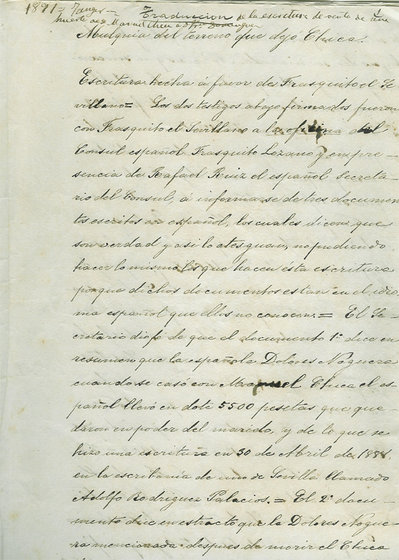 1891 Tanger = Traduccion de la escritura de venta de
Mulquia del terreno que dejó Chica.
Escritura hecha á favor de Frasquito el Se-
villano = Los dos testigos abajo firmados fueron
con Frasquito el Sevillano a la oficina del
Consul español Frasquito Lozano y en pre-
sencia de Rafael Ruiz el español Secreta-
rio del Consul, á informarse de tres documen-
tos escritos en español, los cuales dicen que
son verdad y asi lo atestiguan, no pudiendo
hacer lo mismo los que hacen ésta escritura
porque dichos documentos estan en el idio-
ma español que ellos no conocen. = El Se-
cretario dice de que el documento 1º dice en
resumen que la española Dolores Noguera
cuando se casó con Manuel Chica el es-
pañol llevó en dote 5500 pesetas que que-
daron en poder del marido, y de lo que se
hizo una escritura en 30 de Abril de 1888
en la escribania de uno de Sevilla llamado
Adolfo Rodriguez Palacios. = El 2º docu-
mento dice en extracto que la Dolores Nogue-
ra mencionada despues de morir el Chica